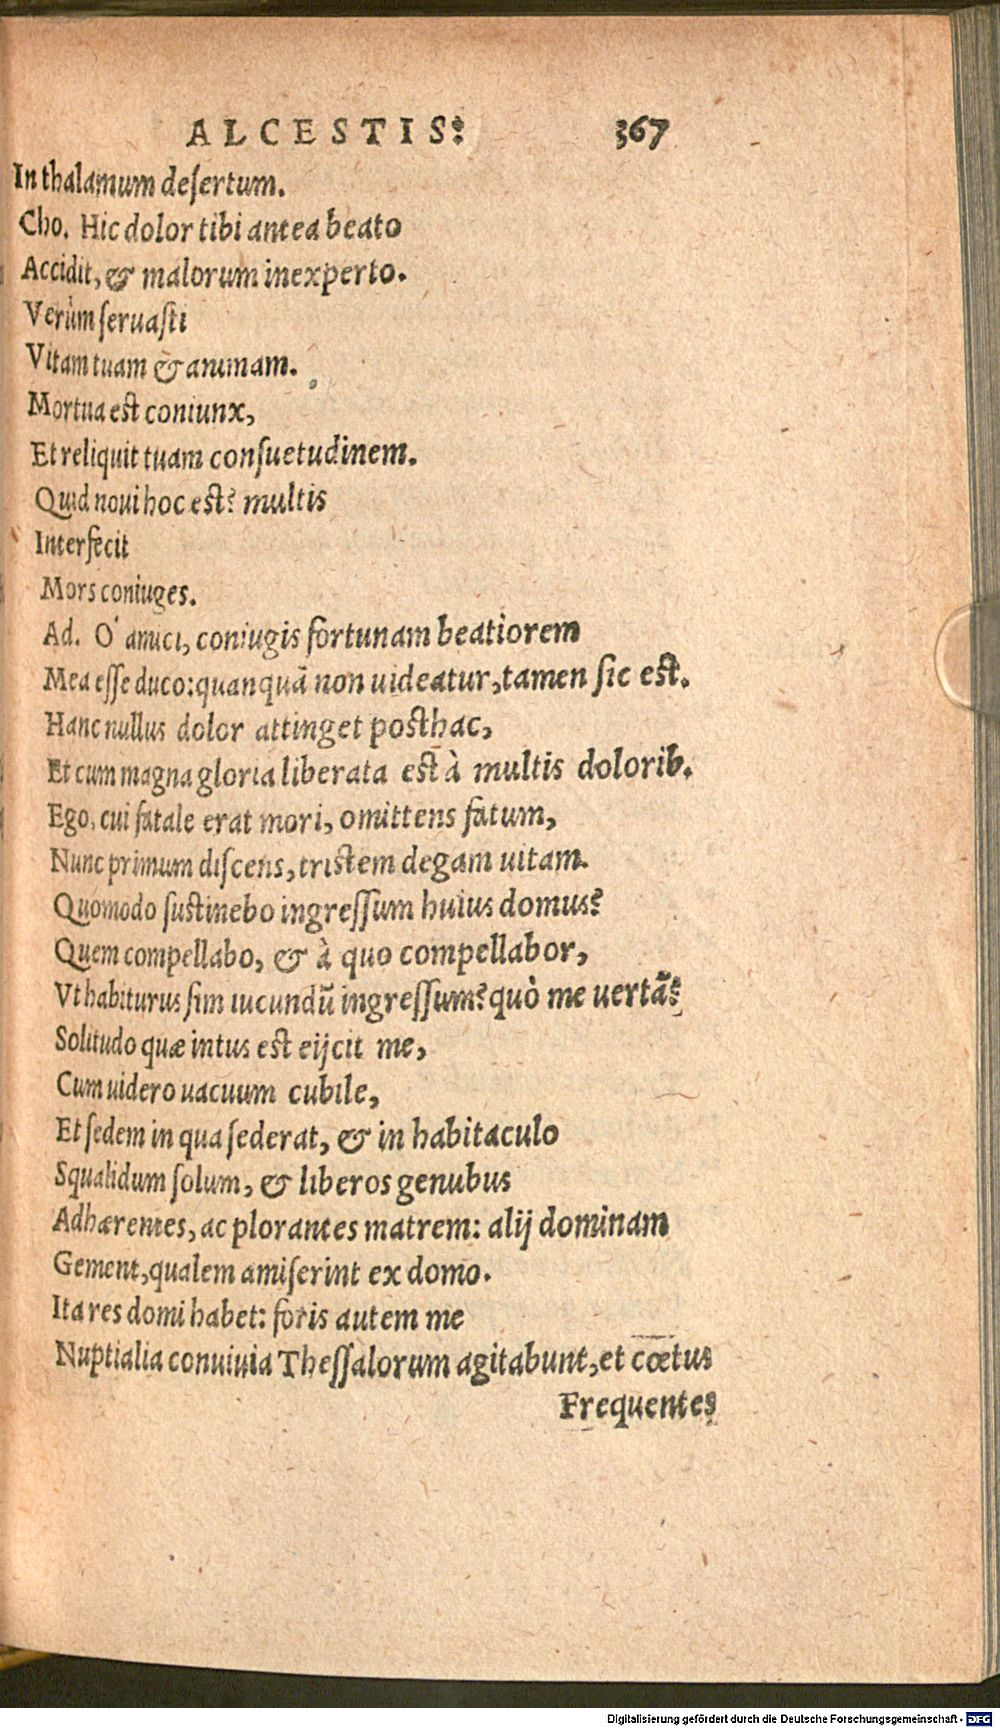 ALCESTIS. 367
In thalamum desertum.
Cho. Hic dolor tibi antea beato
Accidit, & malorum inexperto.
Verùm seruasti
Vitam tuam & animam.
Mortua est coniunx,
Et reliquit tuam consuetudinem.
Quid noui hoc est? multis
Interfecit
Mors coniuges.
Ad. O' amici, coniugis fortunam beatiorem
Mea esse duco: quanquā non uideatur, tamen sic est.
Hanc nullus dolor attinget posthac,
Et cum magna gloria liberata est à multis dolorib.
Ego, cui fatale erat mori, omittens fatum,
Nunc primum discens, tristem degam uitam.
Quomodo sustinebo ingressum huius domus?
Quem compellabo, & à quo compellabor,
Vt habiturus sim iucundū ingressum? quò me uertā?
Solitudo quæ intus est eijcit me,
Cum uidero uacuum cubile,
Et sedem in qua sederat, & in habitaculo
Squalidum solum, & liberos genubus
Adhærentes, ac plorantes matrem: alij dominam
Gement, qualem amiserint ex domo.
Ita res domi habet: foris autem me
Nuptialia conuiuia Thessalorum agitabunt, et cœtus
Frequentes
Digitalisierung gefördert durch die Deutsche Forschungsgemeinschaft - DFG